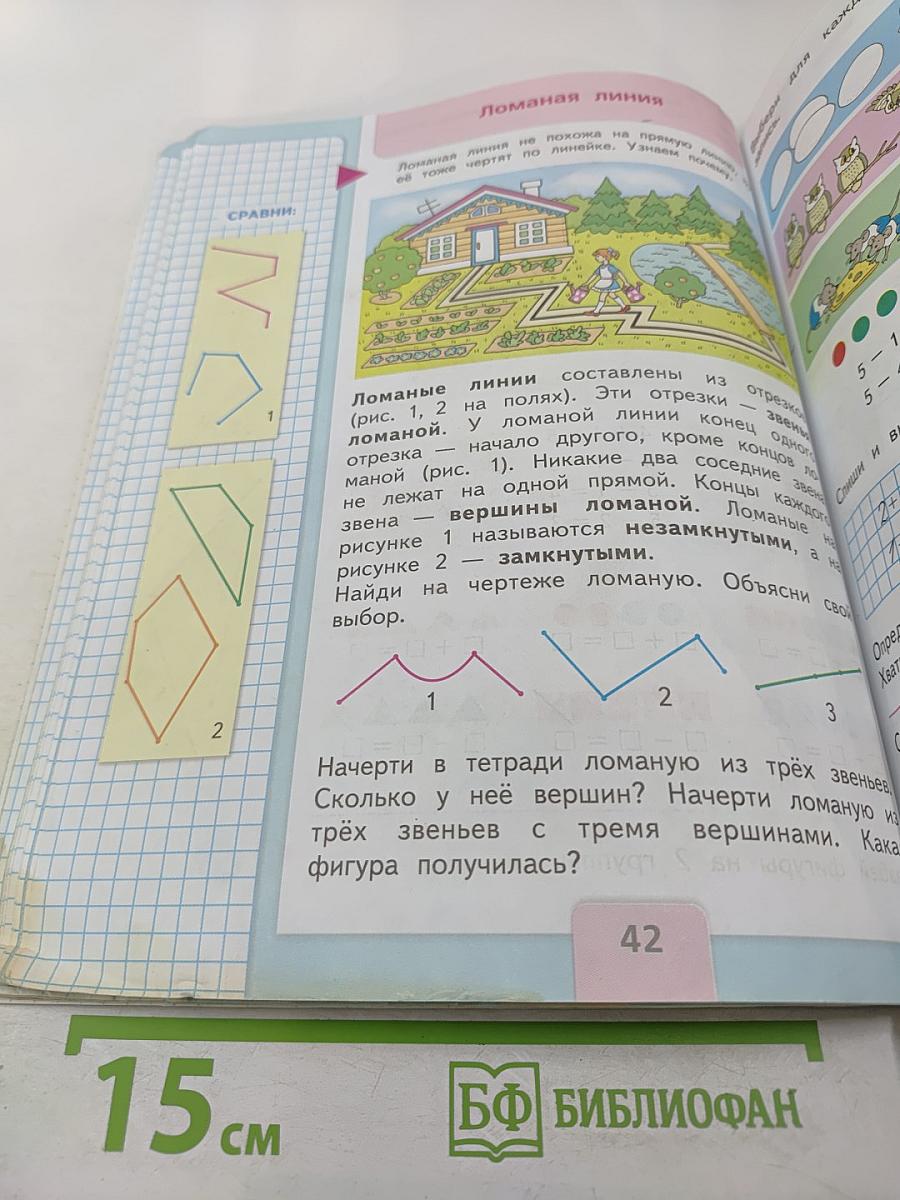 Ломаная линия
Ломаная линия не похожа на прямую линию,
её тоже чертят по линейке. Узнаем почему.
СРАВНИ:
1
2
Ломаные линии составлены из отрезко
(рис. 1, 2 на полях). Эти отрезки — звень
ломаной. У ломаной линии конец одног
отрезка — начало другого, кроме концов ло
маной (рис. 1). Никакие два соседние звена
не лежат на одной прямой. Концы каждого
звена — вершины ломаной. Ломаные на
рисунке 1 называются незамкнутыми, а на
рисунке 2 — замкнутыми.
Найди на чертеже ломаную. Объясни свой
выбор.
1
2
3
Начерти в тетради ломаную из трёх звеньев.
Сколько у неё вершин? Начерти ломаную из
трёх звеньев с тремя вершинами. Кака
фигура получилась?
42
для кажд
5 — 1
5 — 4
Спиши и вы
2+
Опред
Хват
15 см
БФ БИБЛИОФАН